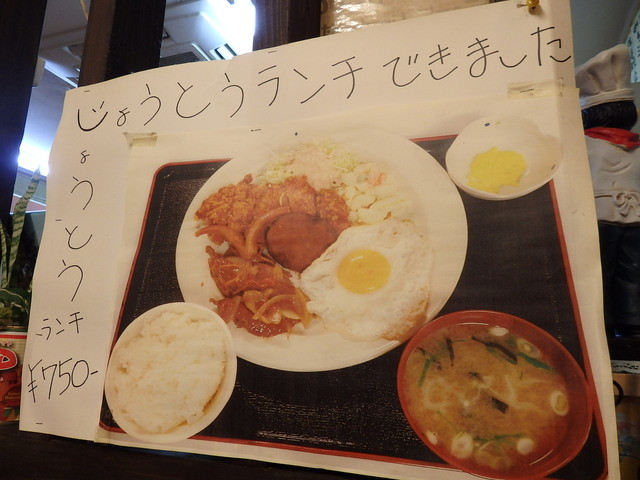 じょうとうランチできました
じょうとう
ランチ
¥750-